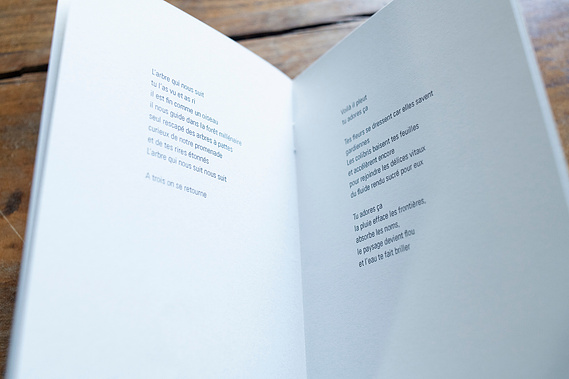 L'arbre qui nous suit
tu l'as vu et as ri
il est fin comme un oiseau
il nous guide dans la forêt millénaire
seul rescapé des arbres à pattes
curieux de notre promenade
et de tes rires étonnés
L'arbre qui nous suit nous suit
A trois on se retourne
Voilà il pleut
Tu adores ça
Tes fleurs se dressent car elles savent
gardiennes
Les colibris baisent tes feuilles
et accélèrent encore
pour rejoindre les délices vitaux
du fluide rendu sucré pour eux
Tu adores ça
la pluie efface les frontières,
absorbe les noms,
le paysage devient flou
et l'eau te fait briller